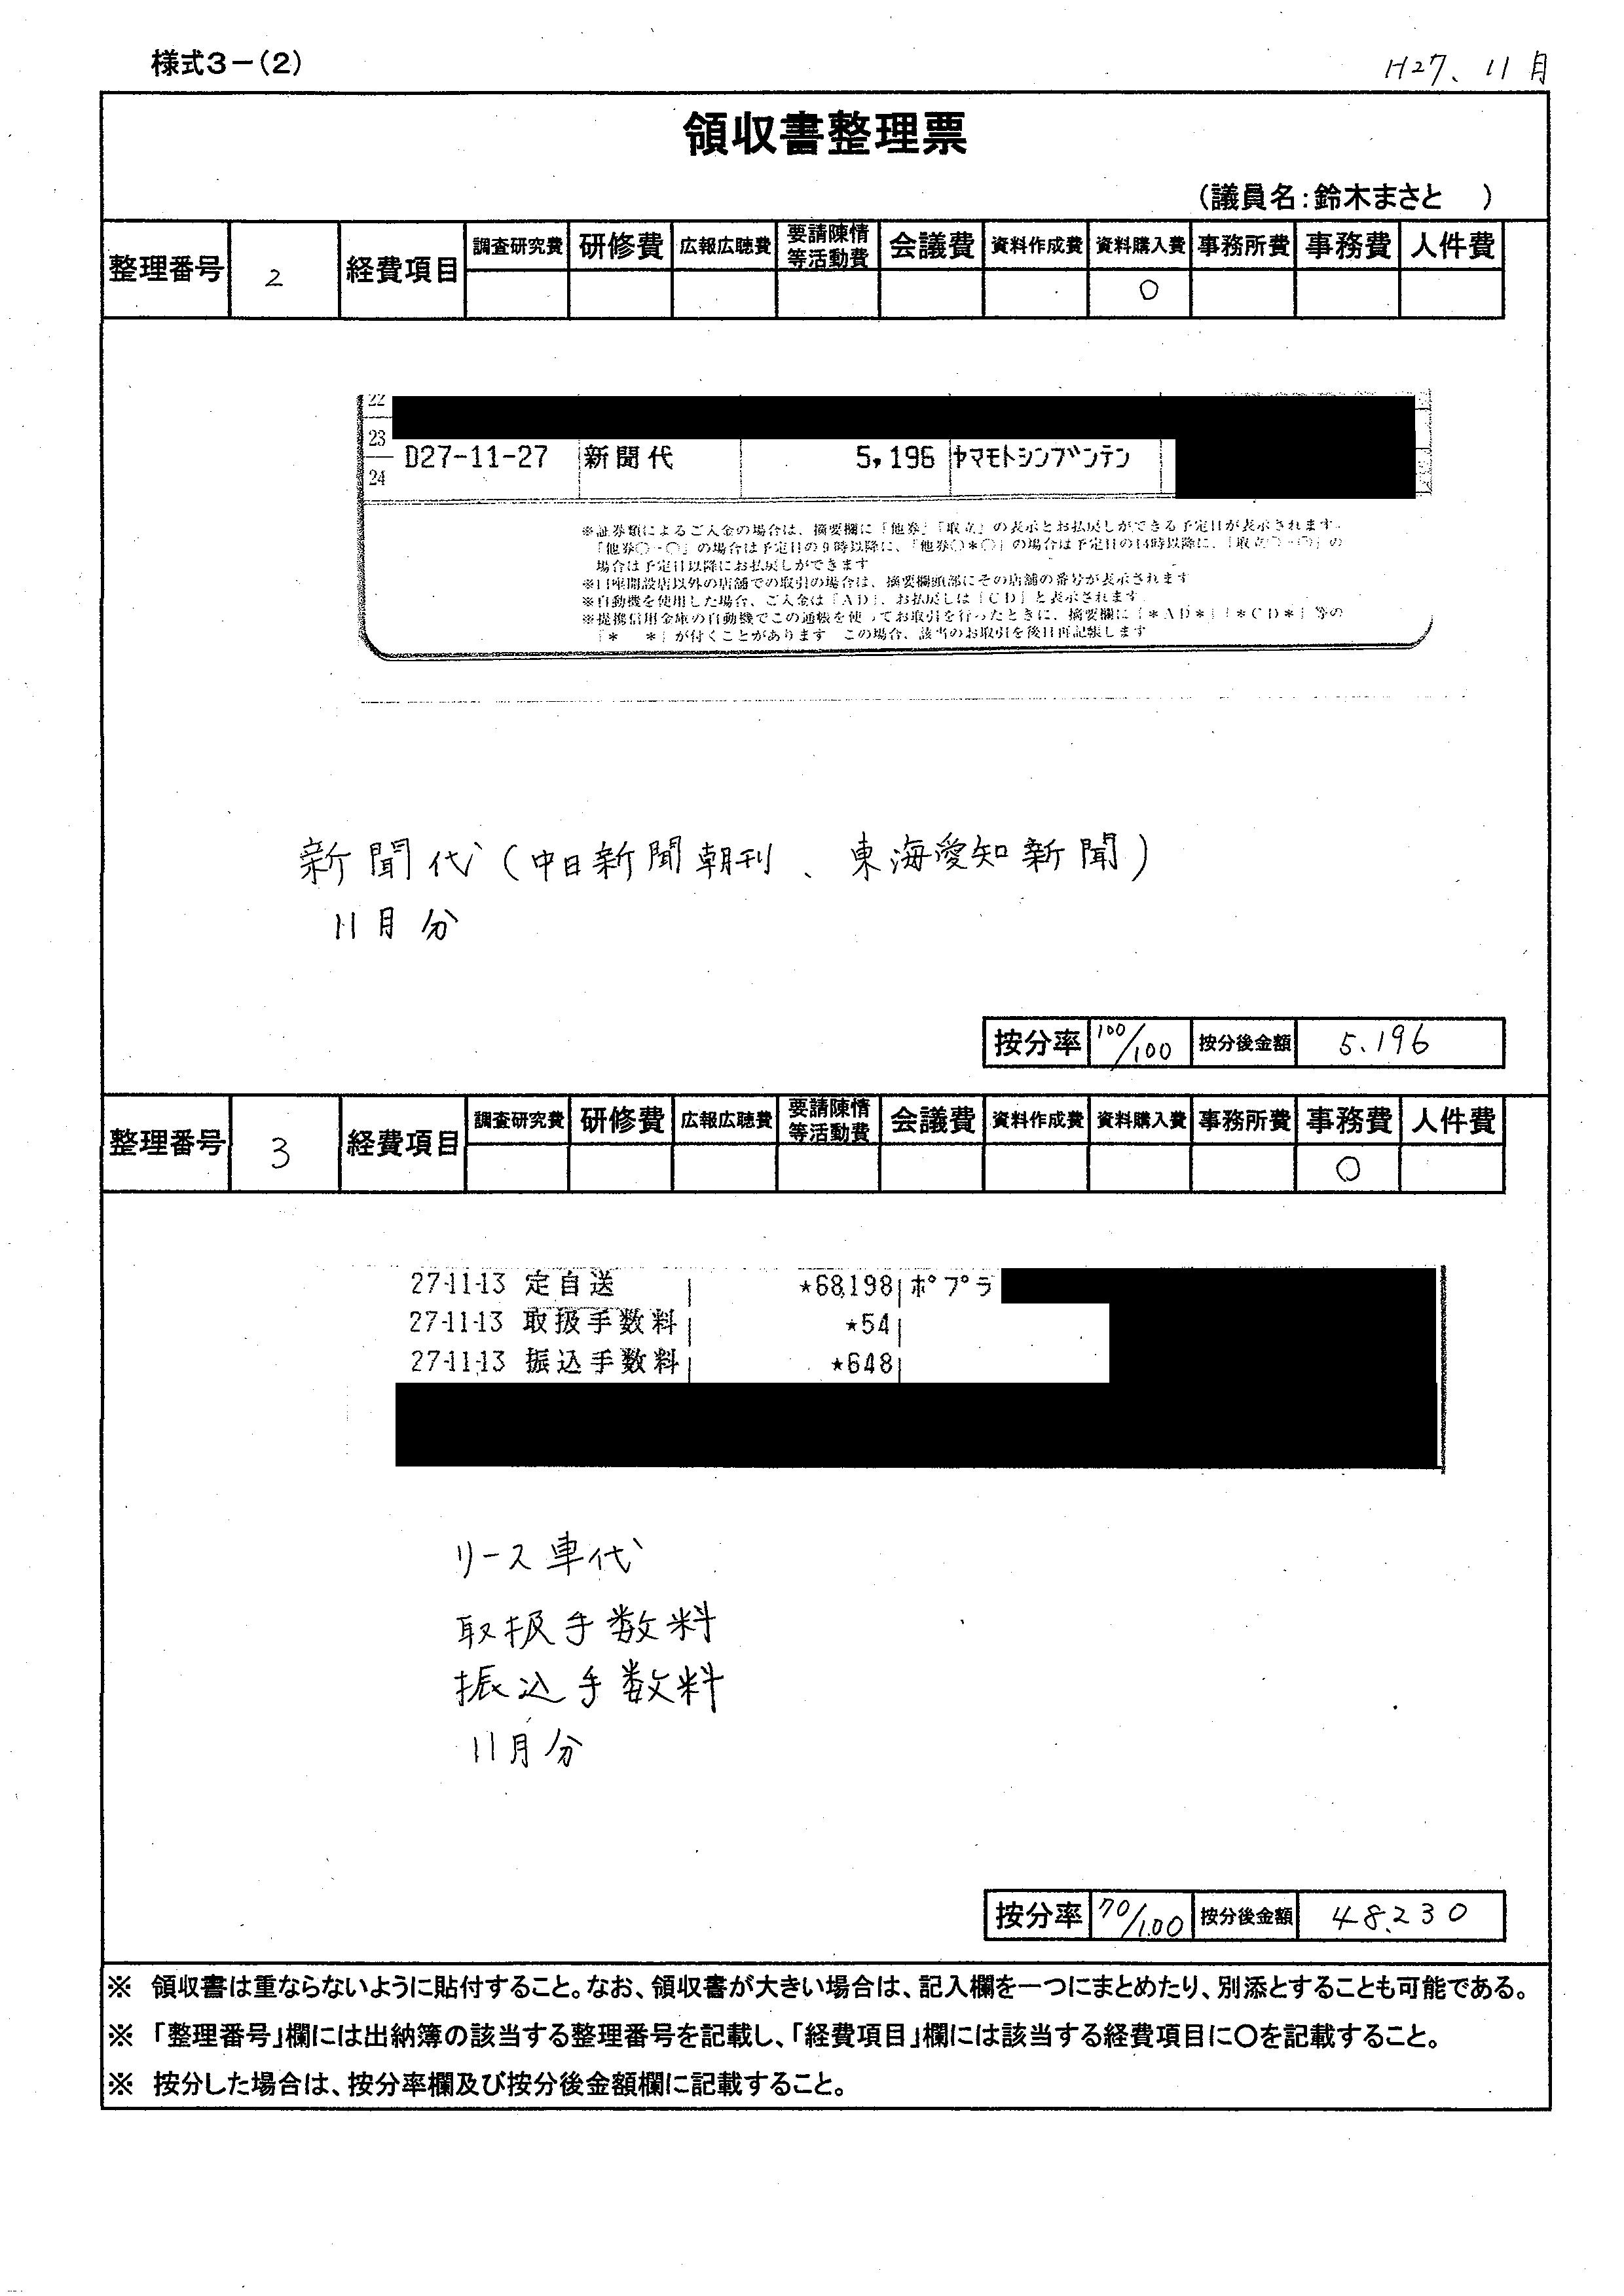 様式3－(2)
H27、11月
領収書整理票
(議員名:鈴木まさと　　)
整理番号 2 経費項目 調査研究費 研修費 広報広聴費 要請陳情等活動費 会議費 資料作成費 資料購入費 事務所費 事務費 人件費
○
22
23
D27-11-27 新聞代 5,196 ヤマモトシンブンテン
24
※証券類によるご入金の場合は、摘要欄に「他券」「取立」の表示とお払戻しができる予定日が表示されます。
「他券○－○」の場合は予定日の9時以降に、「他券○＊○」の場合は予定日の14時以降に、「取立○－○」の
場合は予定日以降にお払戻しができます
※口座開設店以外の店舗での取引の場合は、摘要欄頭部にその店舗の番号が表示されます
※自動機を使用した場合、ご入金は「AD」、お払戻しは「CD」と表示されます
※提携信用金庫の自動機でこの通帳を使ってお取引を行ったときに、摘要欄に「＊AD＊」「＊CD＊」等の
「＊　＊」が付くことがあります　この場合、該当のお取引を後日再記帳します
新聞代(中日新聞朝刊、東海愛知新聞)
11月分
按分率 100/100 按分後金額 5.196
整理番号 3 経費項目 調査研究費 研修費 広報広聴費 要請陳情等活動費 会議費 資料作成費 資料購入費 事務所費 事務費 人件費
○
27-11-13 定自送 *68,198 ポプラ
27-11-13 取扱手数料 *54
27-11-13 振込手数料 *648
リース車代
取扱手数料
振込手数料
11月分
按分率 70/100 按分後金額 48,230
※ 領収書は重ならないように貼付すること。なお、領収書が大きい場合は、記入欄を一つにまとめたり、別添とすることも可能である。
※ 「整理番号」欄には出納簿の該当する整理番号を記載し、「経費項目」欄には該当する経費項目に○を記載すること。
※ 按分した場合は、按分率欄及び按分後金額欄に記載すること。